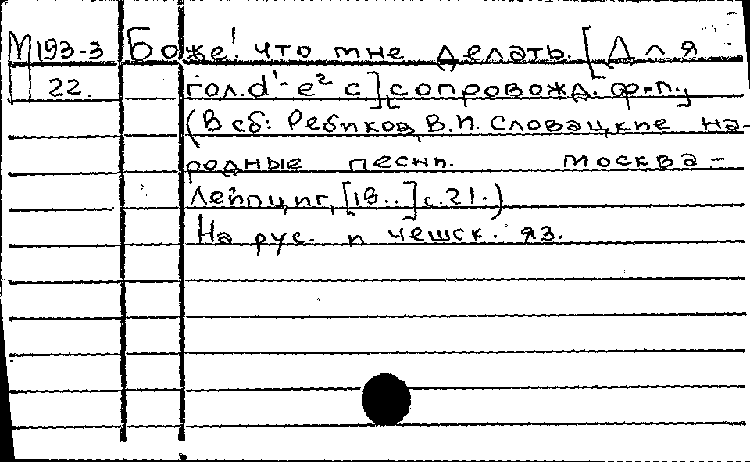 М193-3 Боже! что мне делать. [Для
22. гол. d¹-e² с] сопровожд. ф-п.
(В сб: Ребиков, В.И. Словацкие на-
родные песни. Москва-
Лейпциг, [18..] с.21.)
На рус. и чешск. яз.